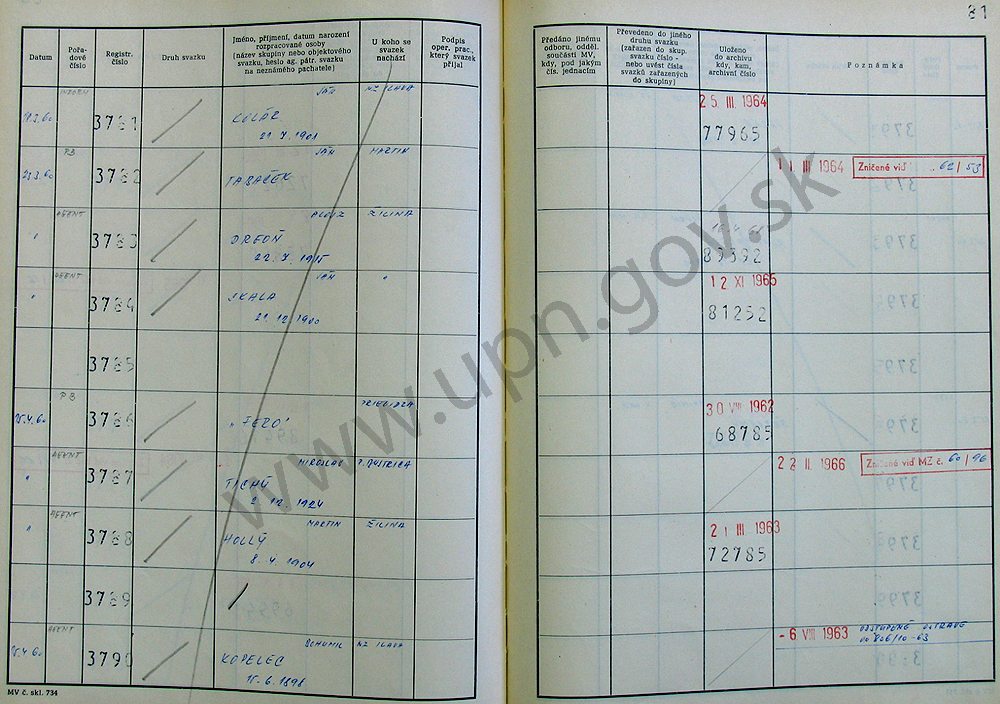 81
Datum
Pořa-
dové
číslo
Registr.
číslo
Druh svazku
Jméno, příjmení, datum narození
rozpracované osoby
(název skupiny nebo objektového
svazku, heslo ag. pátr. svazku
na neznámého pachatele)
U koho se
svazek
nachází
Podpis
oper. prac.,
který svazek
přijal
Předáno jinému
odboru, odděl.
součásti MV,
kdy, pod jakým
čís. jednacím
Převedeno do jiného
druhu svazku
(zařazen do skup.
svazku číslo -
nebo uvést čísla
svazků zařazených
do skupiny)
Uloženo
do archivu
kdy, kam,
archivní číslo
Poznámka
3781
JÁN
21. 7. 1901
25 III 1964
77965
PB
23.3.60
3782
JÁN
TABAČEK
MARTIN
11 III 1964
Zničené viď 62/53
AGENT
"
3783
ALOJZ
ŽILINA
22. 7. 1915
89392
AGENT
"
3784
JÁN
SKALA
21. 12. 1900
"
12 XI 1965
81252
3785
PB
15.4.60
3786
"FERO"
PRIEVIDZA
30 VIII 1962
68785
AGENT
"
3787
MIROSLAV
TICHÝ
2. 12. 1924
P. BYSTRICA
22 II. 1966
Zničené viď MZ č. 60/96
AGENT
"
3788
MARTIN
HOLLÝ
8. 4. 1904
ŽILINA
21 III 1963
72785
3789
AGENT
15.4.60
3790
BOHUMIL
KOPELEC
15. 6. 1898
NZ ILAVA
- 6 VIII 1963
ODSTÚPENÉ OSTRAVE
MV č. skl. 734
www.upn.gov.sk